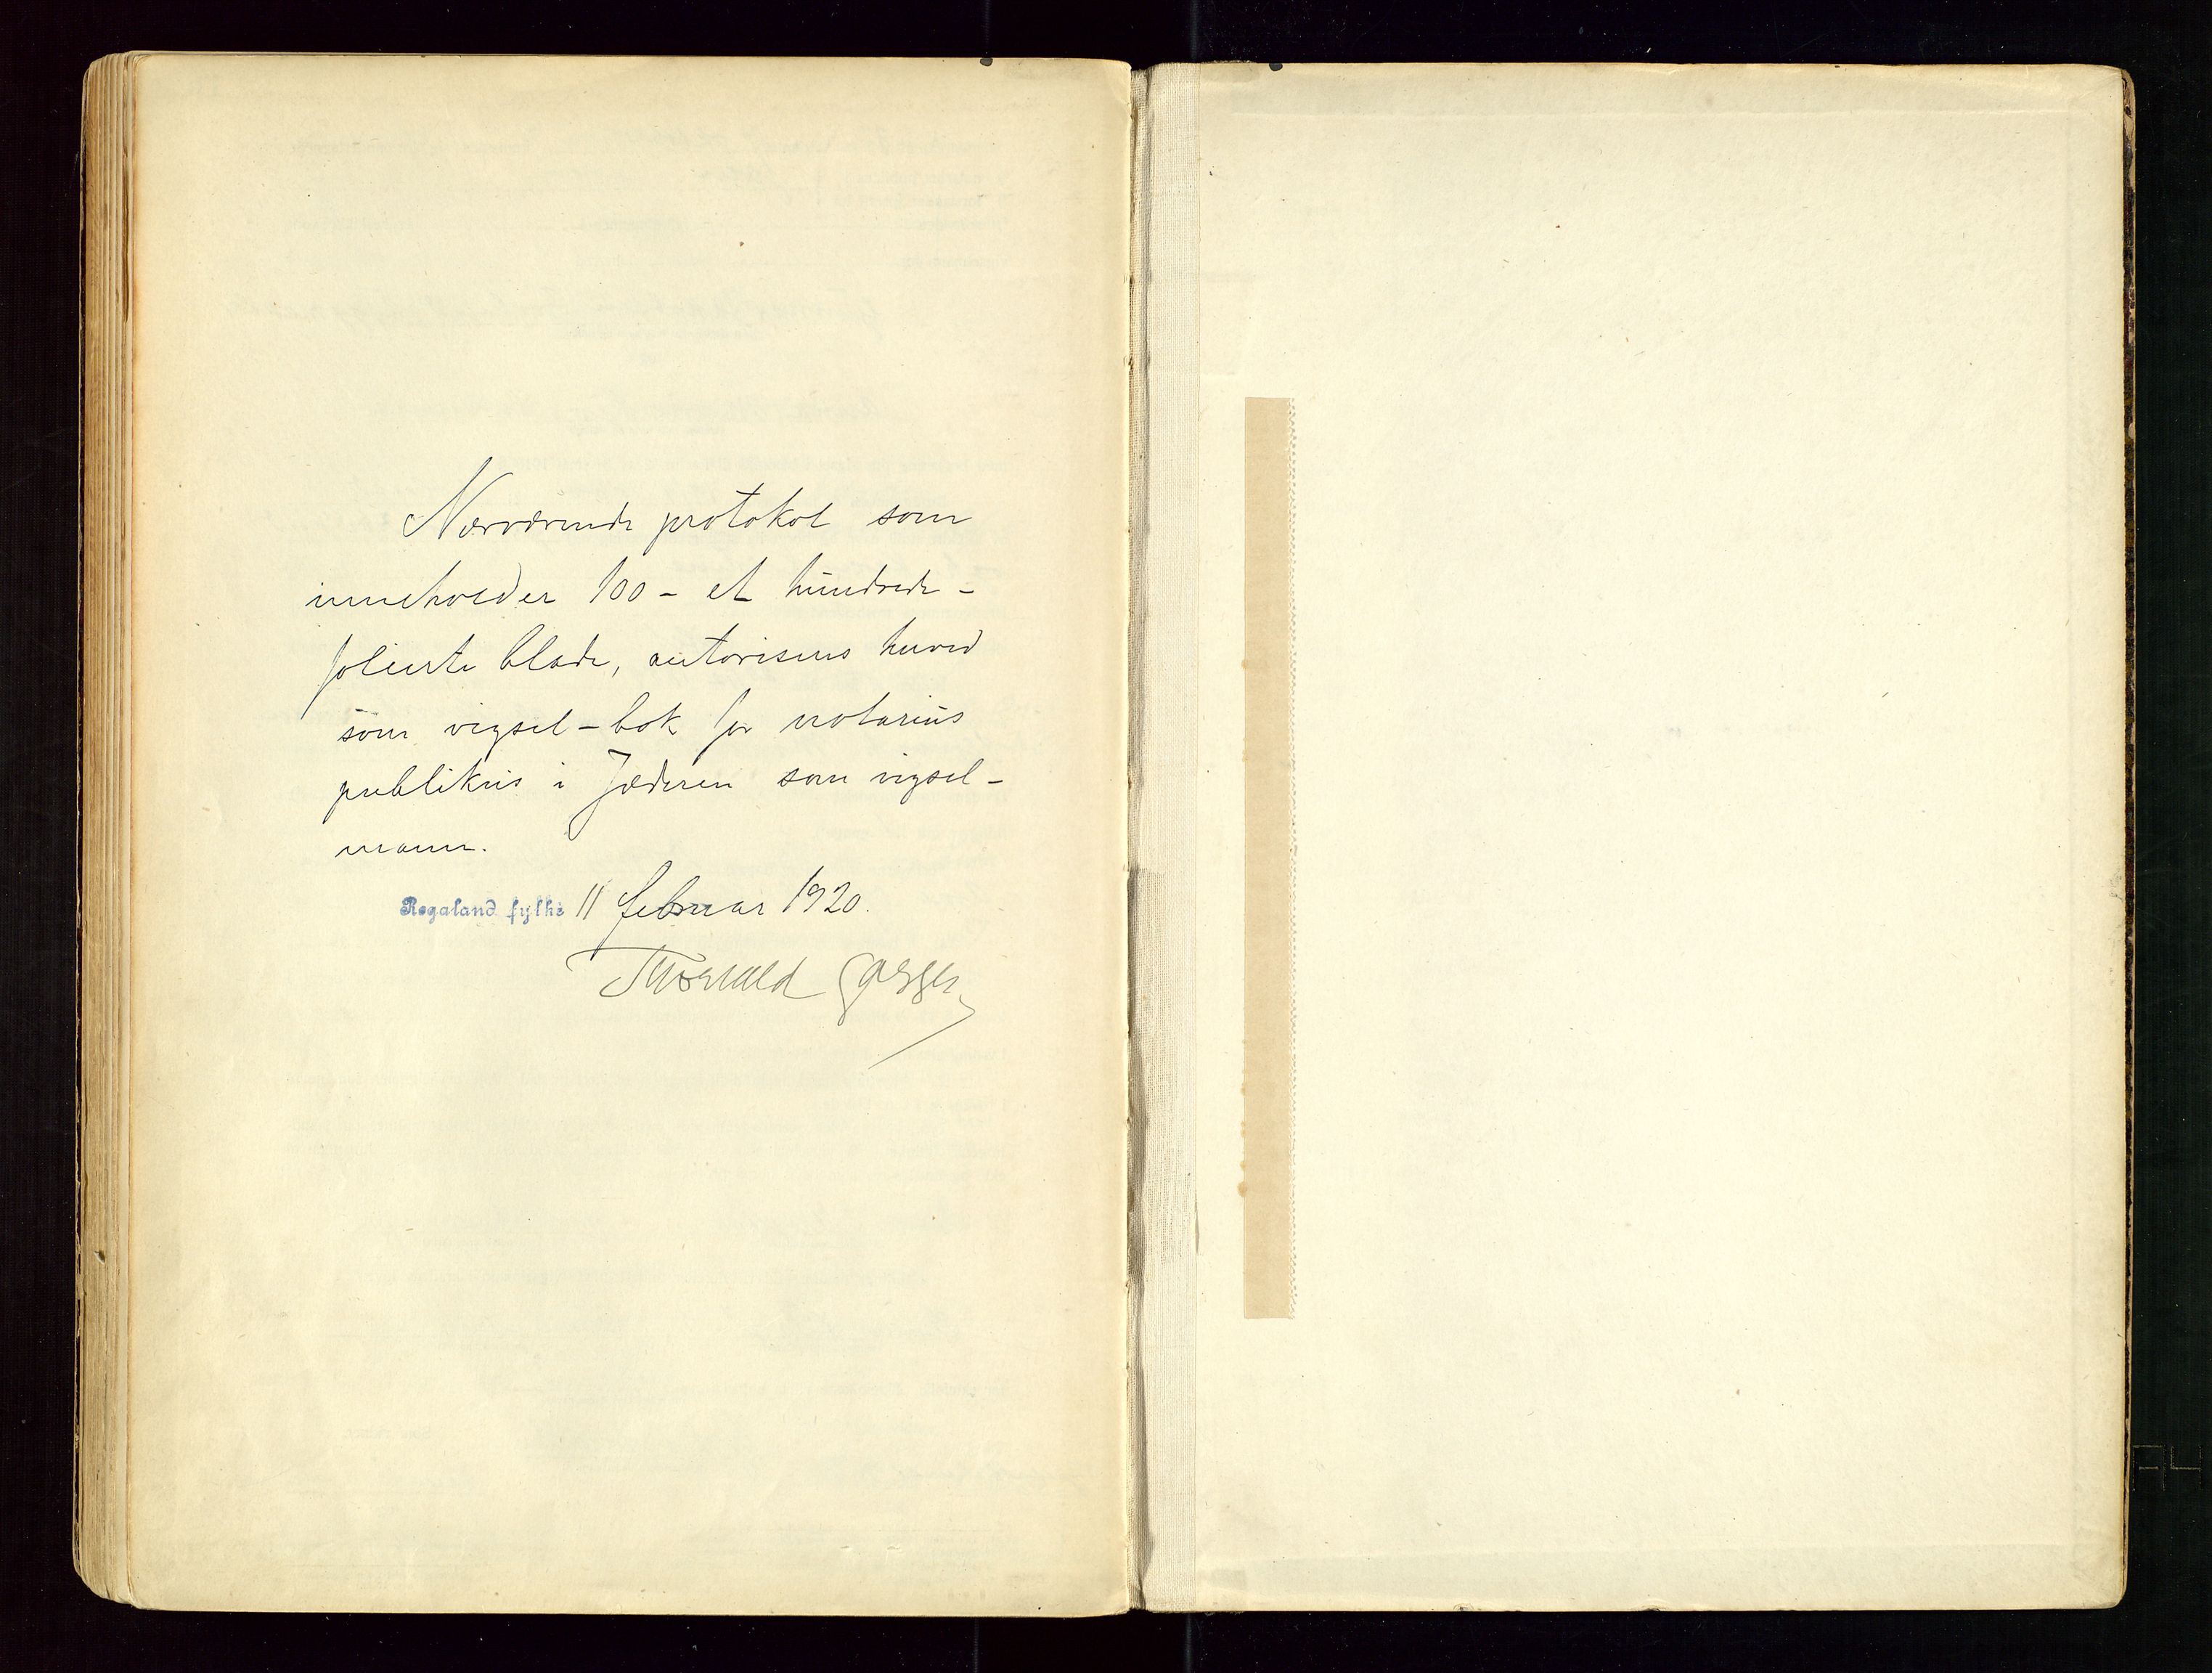 Nærværende protokol som
inneholder 100 - et hundrede -
folierte blade, autoriseres herved
som vigsel - bok for notarius
publikus i Jæderen som vigsel -
mann.
Rogaland fylke 11 februar 1920.
Thorvald